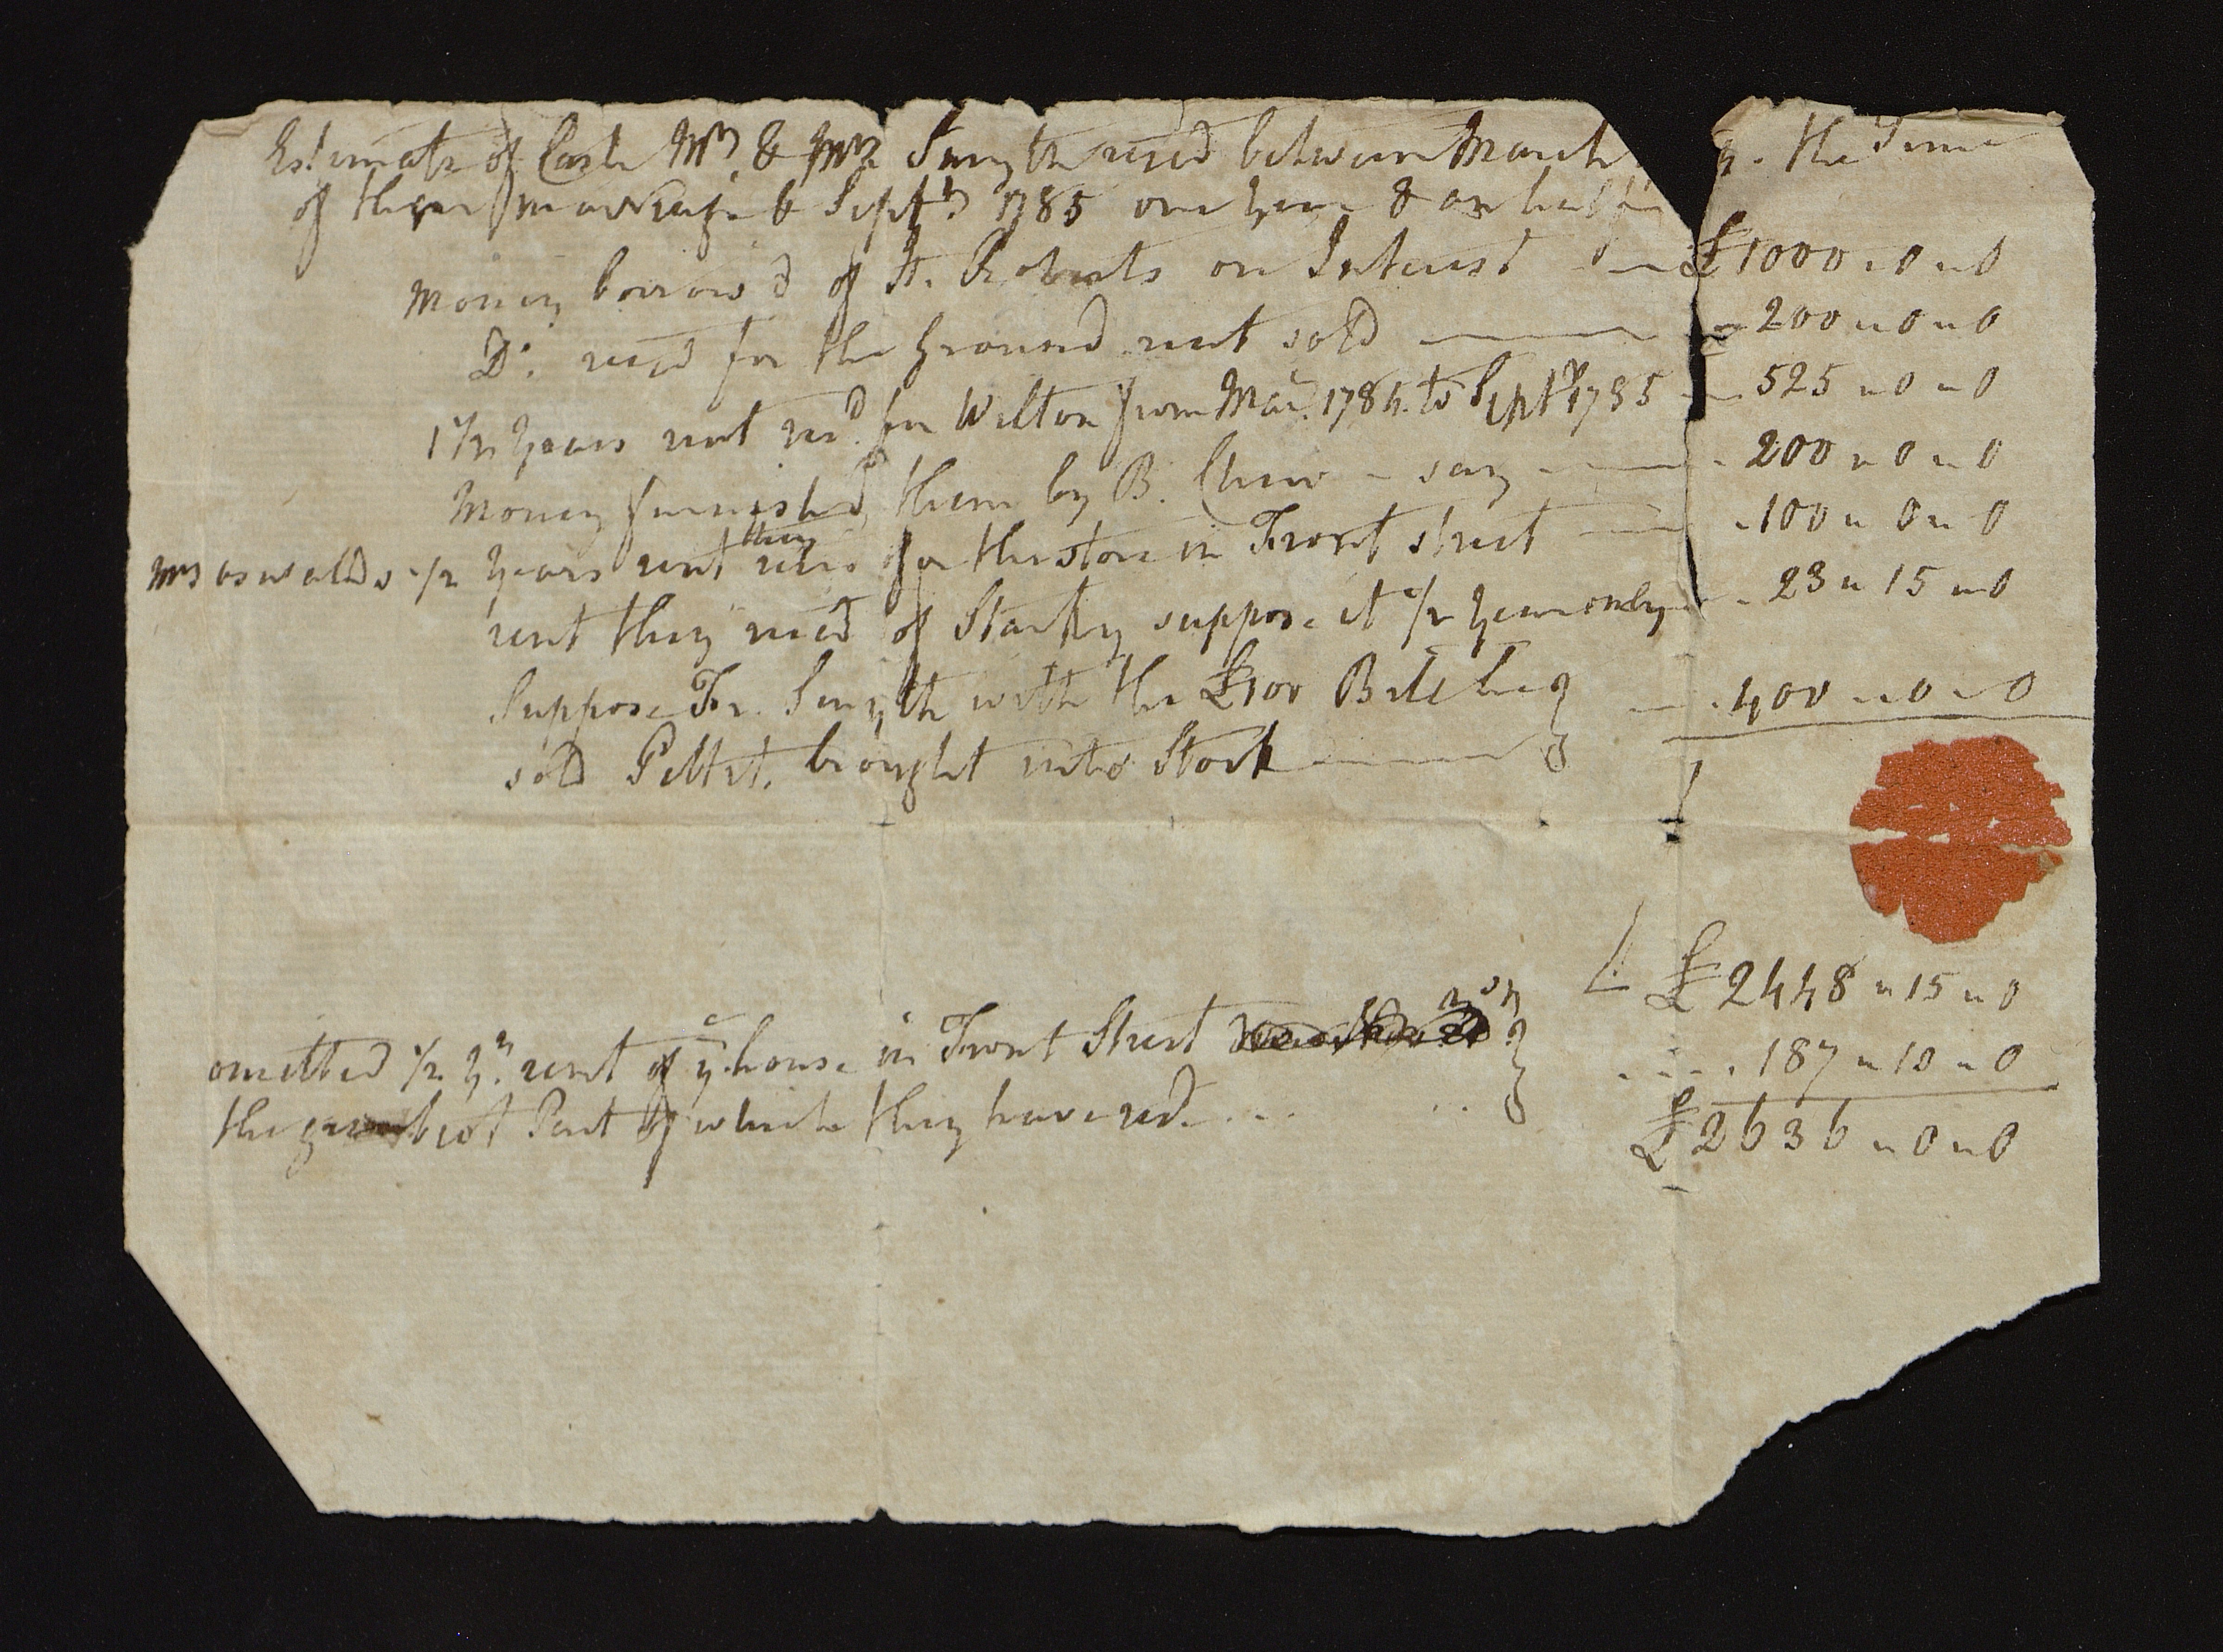 Estimate of Cash Mr & Mrs Smyth recd between March 4. the Time
of their marriage & Sept. 1785 one year & an half
Money borrow'd of H. Roberts on Interest £1000 " 0 " 0
Do. recd for the ground rent sold 200 " 0 " 0
1 1/2 years rent recd. for Wilton from Mar. 1784. to Septr 1785 525 " 0 " 0
Money furnished them by B. Chew - say 200 " 0 " 0
Mrs oswalds 1/2 years rent they recd for the store in Front street 100 " 0 " 0
rent they recd of Starky suppose it 1/2 year only 23 " 15 " 0
Suppose Fr. Smyth with the £100 Bill he } 400 " 0 " 0
sold Pettit. brought into Stock
£2448 " 15 " 0
omitted 1/2 yr. rent of ye. house in Front Street } 187 " 10 " 0
the Part of which they have recd.
£2636 " 0 " 0